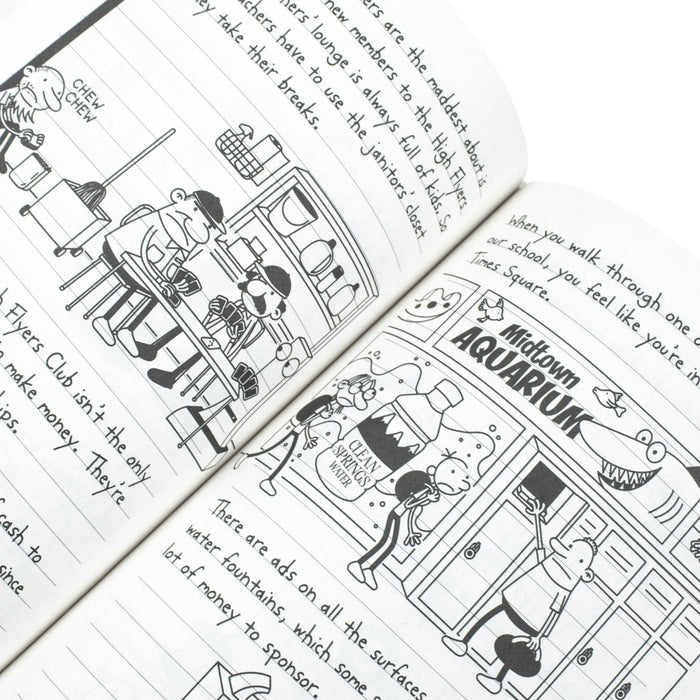 ers are the maddest about is
new members to the High Flyers
ners' lounge is always full of kids. So
achers have to use the janitors' closet
ey take their breaks.
CHEW
CHEW
h Flyers Club isn't the only
o make money. They're
ips.
cash to
since
When you walk through one o
our school, you feel like you're in
Times Square.
Midtown
AQUARIUM
CLEAN
SPRINGS
WATER
There are ads on all the surfaces
water fountains, which some
lot of money to sponsor.